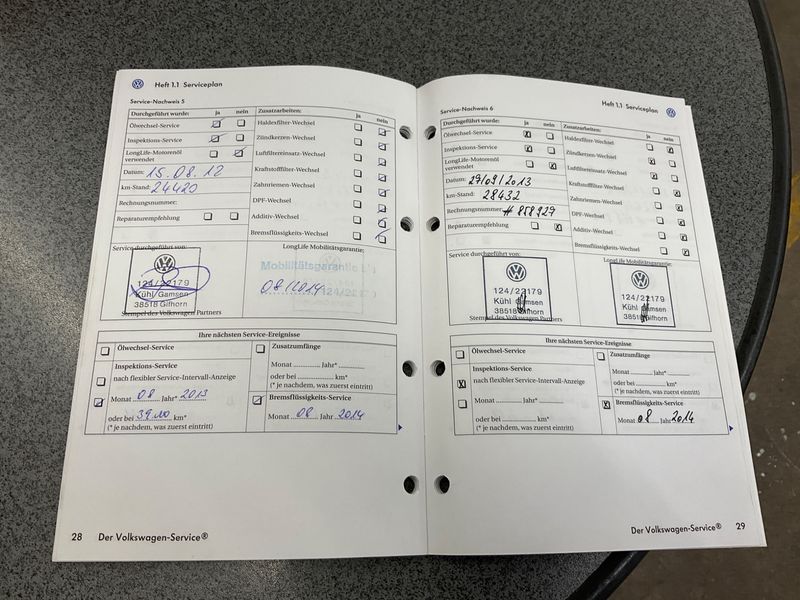 Heft 1.1 Serviceplan
Service-Nachweis 5
Durchgeführt wurde: ja nein
Ölwechsel-Service
Inspektions-Service
LongLife-Motorenöl
verwendet
Datum: 15.08.12
km-Stand: 24420
Rechnungsnummer:
Reparaturempfehlung
Zusatzarbeiten: ja nein
Haldexfilter-Wechsel
Zündkerzen-Wechsel
Luftfiltereinsatz-Wechsel
Kraftstofffilter-Wechsel
Zahnriemen-Wechsel
DPF-Wechsel
Additiv-Wechsel
Bremsflüssigkeits-Wechsel
Service durchgeführt von:
124/22179
Kühl Gamsen
38518 Gifhorn
Stempel des Volkswagen Partners
LongLife Mobilitätsgarantie:
Mobilitätsgarantie
08/2014
Ihre nächsten Service-Ereignisse
Ölwechsel-Service
Inspektions-Service
nach flexibler Service-Intervall-Anzeige
Monat 08 Jahr* 2013
oder bei km*
(* je nachdem, was zuerst eintritt)
Zusatzumfänge
Monat Jahr*
oder bei km*
(* je nachdem, was zuerst eintritt)
Bremsflüssigkeits-Service
Monat 08 Jahr 2014
28 Der Volkswagen-Service®
Heft 1.1 Serviceplan
Service-Nachweis 6
Durchgeführt wurde: ja nein
Ölwechsel-Service
Inspektions-Service
LongLife-Motorenöl
verwendet
Datum: 29/09/2013
km-Stand: 28432
Rechnungsnummer: # 858929
Reparaturempfehlung
Zusatzarbeiten: ja nein
Haldexfilter-Wechsel
Zündkerzen-Wechsel
Luftfiltereinsatz-Wechsel
Kraftstofffilter-Wechsel
Zahnriemen-Wechsel
DPF-Wechsel
Additiv-Wechsel
Bremsflüssigkeits-Wechsel
Service durchgeführt von:
124/22179
Kühl Gamsen
38518 Gifhorn
Stempel des Volkswagen Partners
LongLife Mobilitätsgarantie:
124/22179
Kühl Gamsen
38518 Gifhorn
Ihre nächsten Service-Ereignisse
Ölwechsel-Service
Inspektions-Service
nach flexibler Service-Intervall-Anzeige
Monat Jahr*
oder bei km*
(* je nachdem, was zuerst eintritt)
Zusatzumfänge
Monat Jahr*
oder bei km*
(* je nachdem, was zuerst eintritt)
Bremsflüssigkeits-Service
Monat 08 Jahr 2014
Der Volkswagen-Service® 29